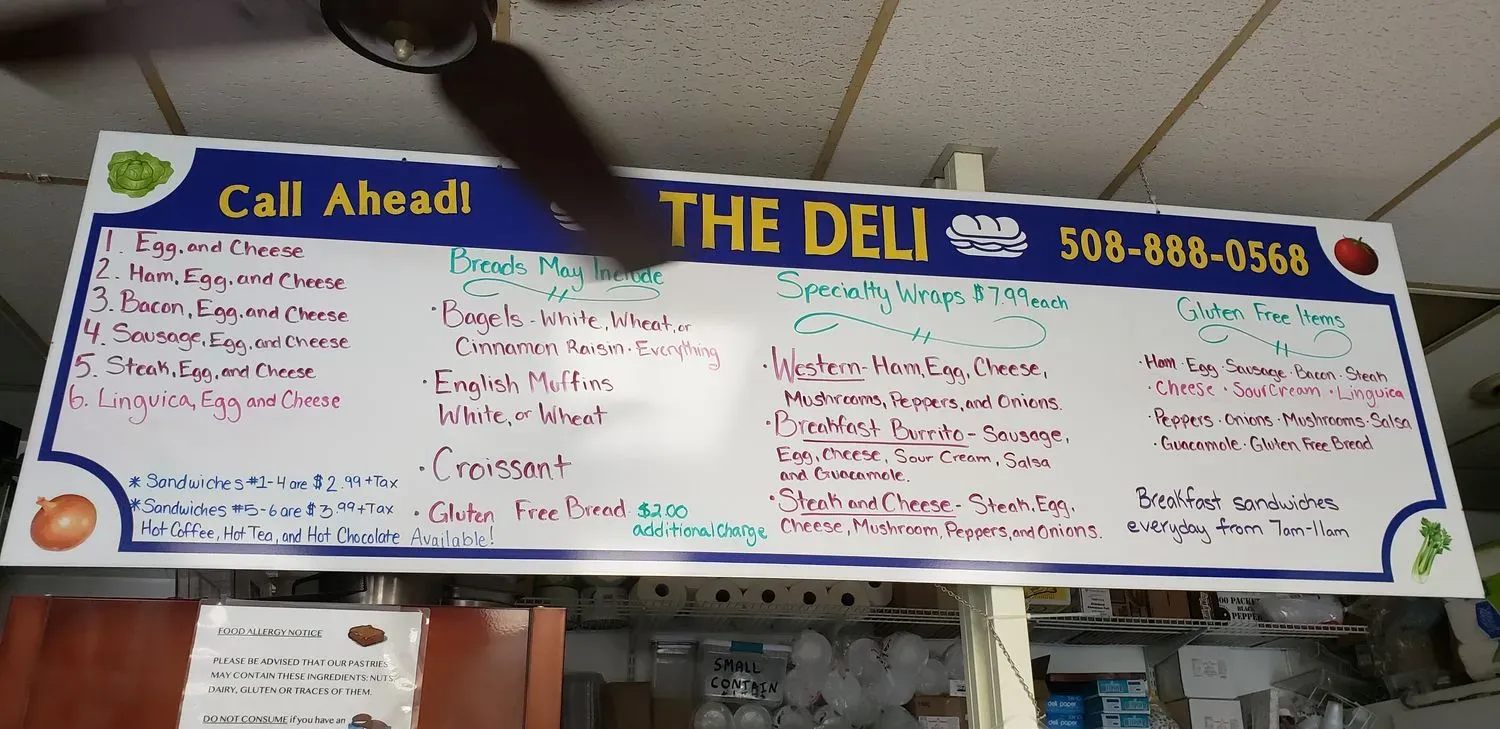 Call Ahead!
THE DELI
508-888-0568
1. Egg, and Cheese
2. Ham, Egg, and Cheese
3. Bacon, Egg, and Cheese
4. Sausage, Egg, and Cheese
5. Steak, Egg, and Cheese
6. Linguica, Egg and Cheese
* Sandwiches #1-4 are $2.99 +Tax
* Sandwiches #5-6 are $3.99 +Tax
Hot Coffee, Hot Tea, and Hot Chocolate Available!
Breads May Include
· Bagels - White, Wheat, or
Cinnamon Raisin · Everything
· English Muffins
White, or Wheat
· Croissant
· Gluten Free Bread $2.00
additional charge
Specialty Wraps $7.99 each
· Western - Ham, Egg, Cheese,
Mushrooms, Peppers, and Onions.
· Breakfast Burrito - Sausage,
Egg, Cheese, Sour Cream, Salsa
and Guacamole.
· Steak and Cheese - Steak, Egg,
Cheese, Mushroom, Peppers, and Onions.
Gluten Free Items
· Ham · Egg · Sausage · Bacon · Steak
· Cheese · Sour Cream · Linguica
· Peppers · Onions · Mushrooms · Salsa
· Guacamole · Gluten Free Bread
Breakfast sandwiches
everyday from 7am-11am
FOOD ALLERGY NOTICE
PLEASE BE ADVISED THAT OUR PASTRIES
MAY CONTAIN THESE INGREDIENTS: NUTS,
DAIRY, GLUTEN OR TRACES OF THEM.
DO NOT CONSUME if you have an
SMALL
CONTAIN
PACKE
BLACK
PEPPER
deli paper
deli paper